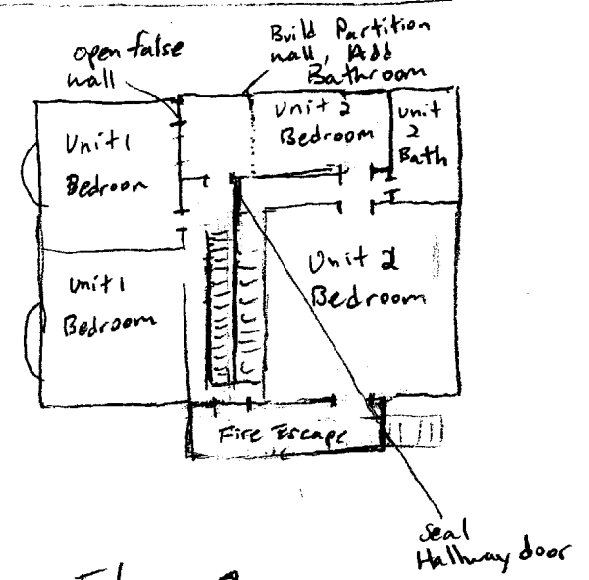 open false
wall
Build Partition
wall, Add
Bathroom
Unit 1
Bedroom
Unit 2
Bedroom
Unit
2
Bath
Unit 1
Bedroom
Unit 2
Bedroom
Fire Escape
Seal
Hallway door